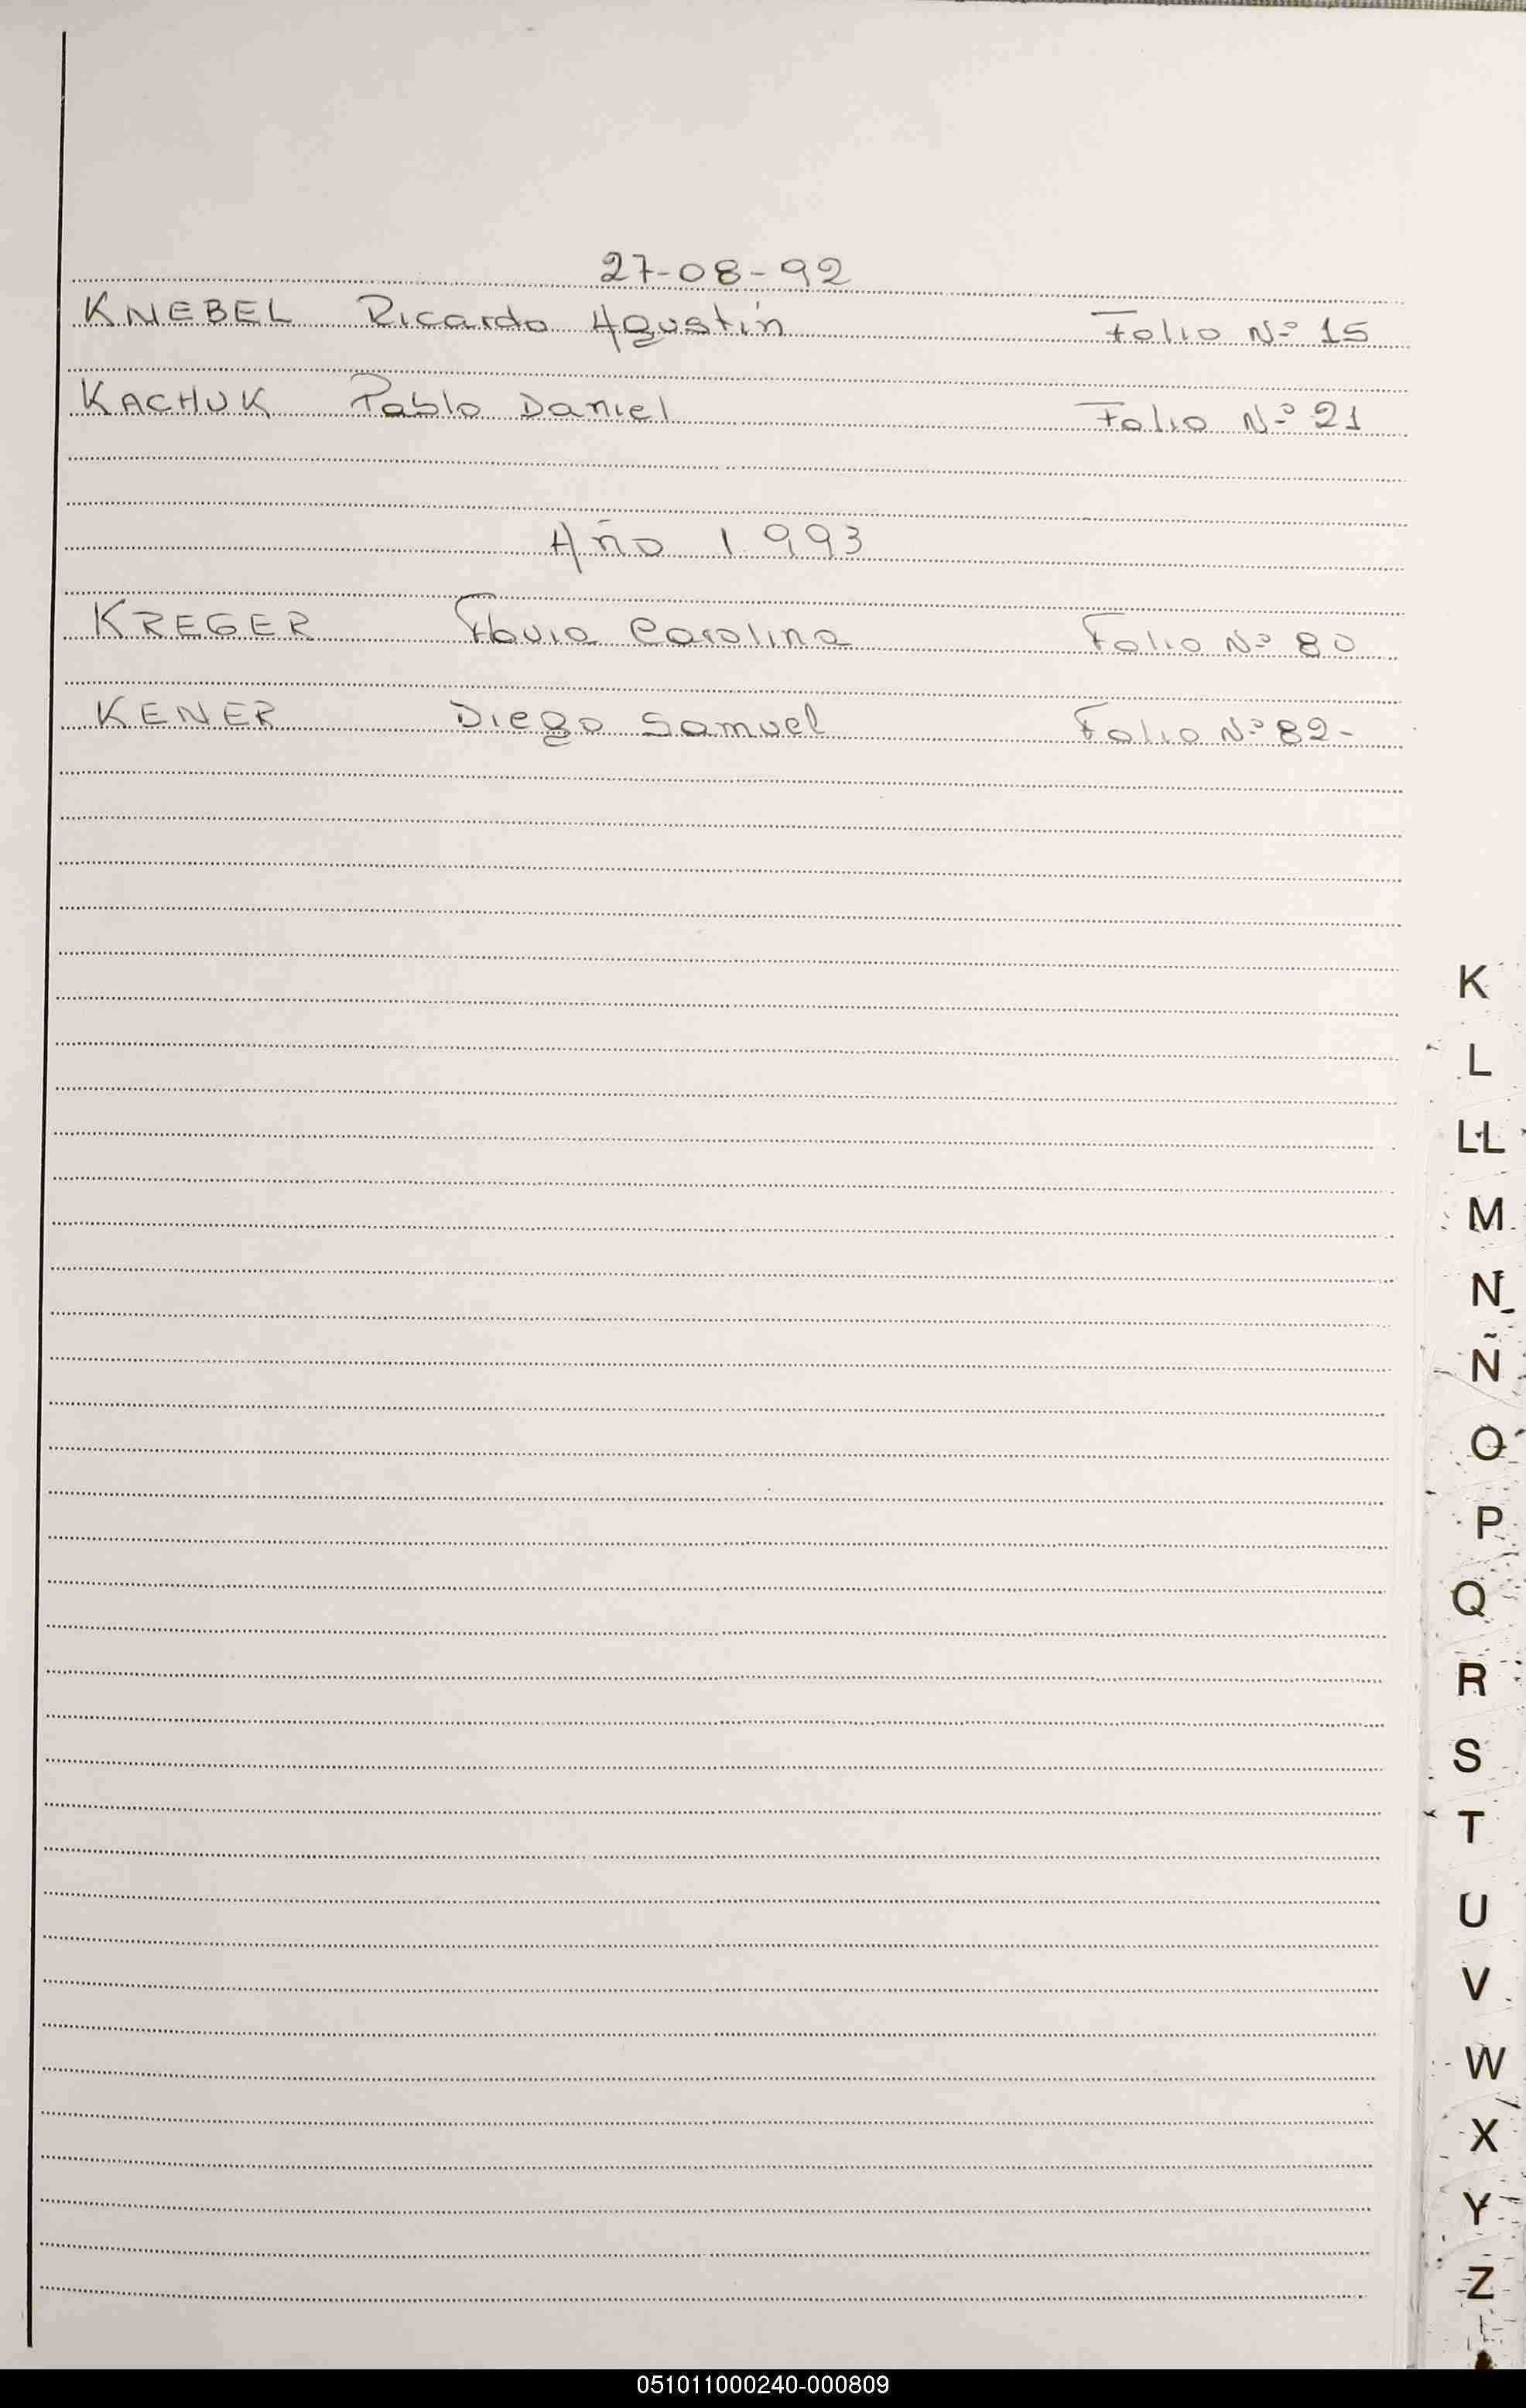 27-08-92
KNEBEL Ricardo Agustín Folio Nº 15
KACHUK Pablo Daniel Folio Nº 21
Año 1.993
KREGER Flavia Carolina Folio Nº 80
KENER Diego Samuel Folio Nº 82-
K
L
LL
M
N
Ñ
O
P
Q
R
S
T
U
V
W
X
Y
Z
051011000240-000809